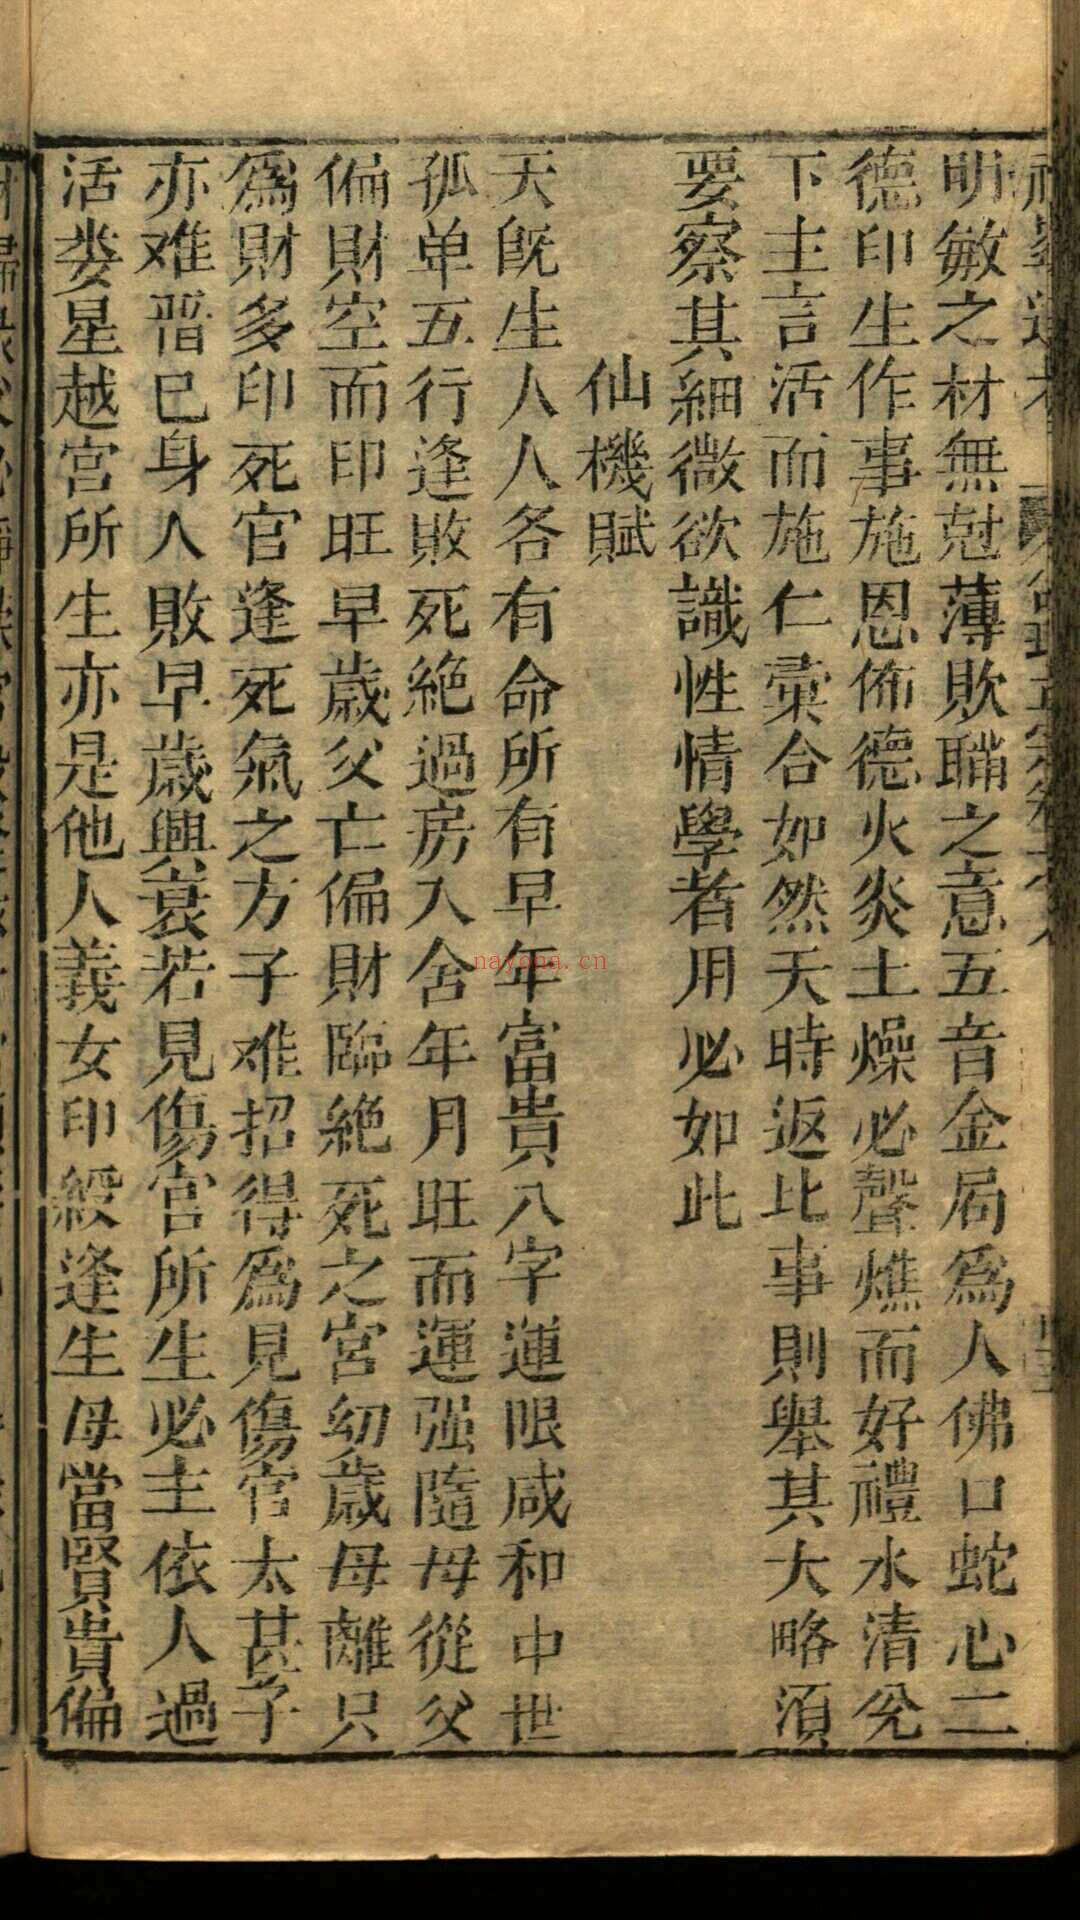 明敏之材無尅薄欺瞞之意五音金局爲人佛口蛇心二
德印生作事施恩佈德火炎土燥必聲燋而好禮水清兊
下主言活而施仁稟合如然天時返比事則舉其大略湏
要察其細微欲識性情學者用必如此
仙機賦
天既生人人各有命所有早年富貴八字運限咸和中世
孤单五行逢敗死絶過房入舍年月旺而運强隨母從父
偏財空而印旺早歲父亡偏財臨絶死之宮幼歲母離只
爲財多印死官逢死氣之方子难招得爲見傷官太甚子
亦难晋巳身入敗早歲興衰若見傷官所生必主依人過
活娄星越宮所生亦是他人義女印綬逢生母當賢貴偏
nayona.cn